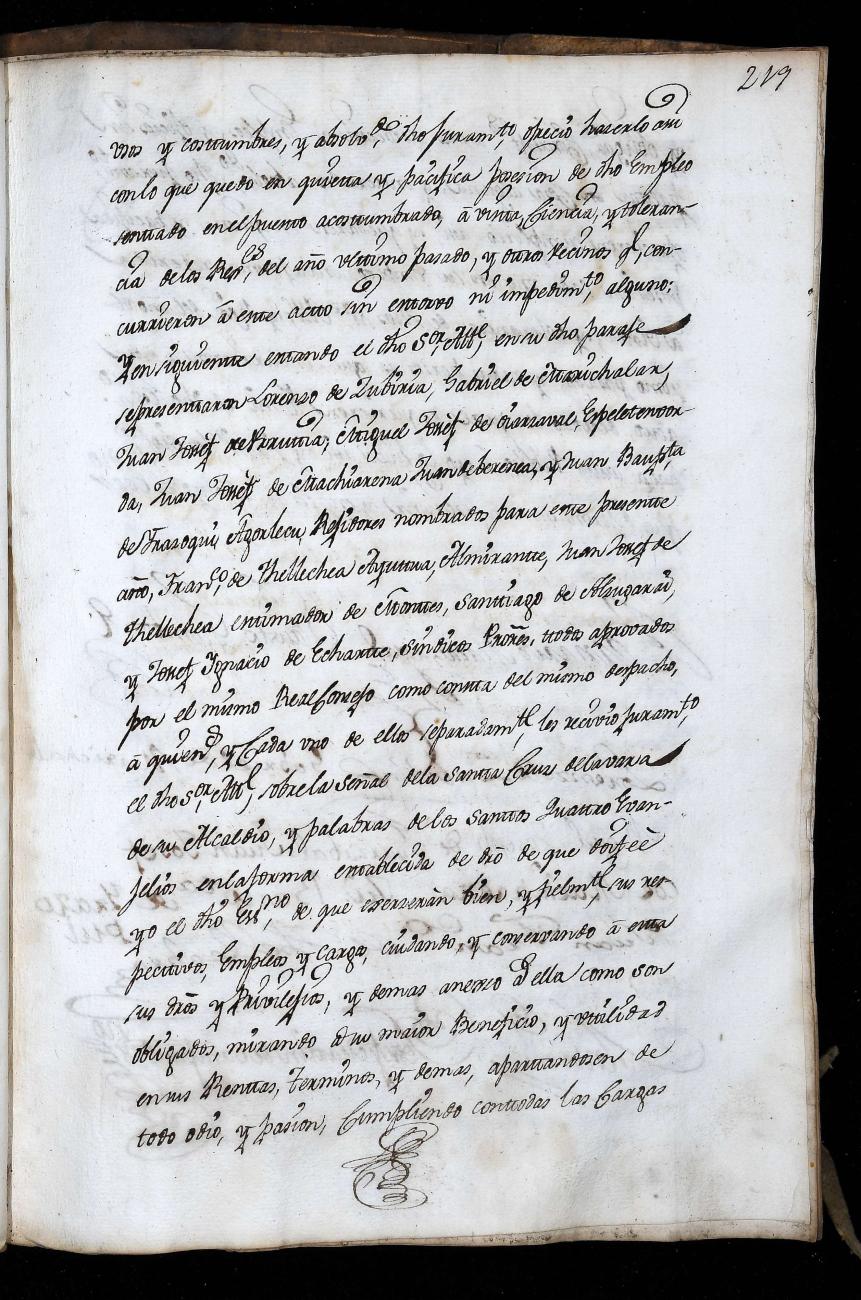 219
usos y costumbres, y absolv.on dho juram.to, ofrecio hacerlo asi
conlo que quedo en quietta y pacifica posesion de dho Empleo
senttado en el puesto acostumbrado, à vista, Ciencia, y toleran-
cia de los Reg.es, del año ulttimo pasado, y otros vecinos q.e, con-
currieron à este actto sin estorvo ni impedim.to, alguno;
Y en siguiente estando el dho S.or, Alc.l, en su dho paraje
se presenttaron Lorenzo de Zubiria, Gabriel de Marichalar,
Juan Josef de Yrruttia, Miguel Josef de Oiarzaval, Espeletenvor-
da, Juan Josef de Machiarena Juan de berenea, y Juan Baup.ta
de Yrazoqui Agorlecu, Regidores nombrados para este presente
año, Fran.co, de Thellechea Ayuttua, Almirantte, Juan Josef de
Thellechea estimador de Monttes, Santtiago de Alzugarai,
y Josef Ygnacio de Echartte, sindicos Prores, ttodos aprovados
por el mismo Real Consejo como constta del mismo despacho,
à quien.s, y Cada uno de ellos separadam.te, les recivio juram.to,
el dho S.or, Alc.l, sobre la señal de la Santta Cruz de la vara
de su Alcaldio, y palabras de los Santtos Quattro Evan-
jelios en la forma establecida de dro de que doi feè
yo el dho Ess.no, de que exerzeràn bien, y fielm.te, sus res-
pectivos, Empleos y cargo, cuidando, y conservando à esta
sus dros y Privilejios, y demas anexo à ella como son
obligados, mirando à su maior Beneficio, y utilidad
en sus Renttas, terminos, y demas, aparttandosen de
todo odio, y pasion, Cumpliendo con ttodas las Cargas